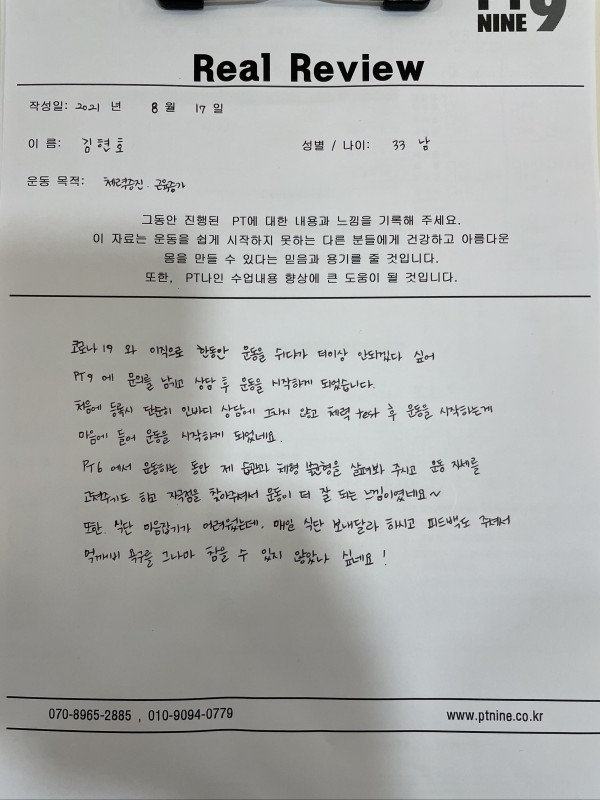 PT9
NINE
Real Review
작성일: 2021 년 8 월 17 일
이 름: 김현호 성별 / 나이: 33 남
운동 목적: 체력증진. 근육증가
그동안 진행된 PT에 대한 내용과 느낌을 기록해 주세요.
이 자료는 운동을 쉽게 시작하지 못하는 다른 분들에게 건강하고 아름다운
몸을 만들 수 있다는 믿음과 용기를 줄 것입니다.
또한, PT나인 수업내용 향상에 큰 도움이 될 것입니다.
코로나 19 와 이직으로 한동안 운동을 쉬다가 더이상 안되겠다 싶어
PT9 에 문의를 남기고 상담 후 운동을 시작하게 되었습니다.
처음에 등록시 단순히 인바디 상담에 그치지 않고 체력 test 후 운동을 시작하는게
마음에 들어 운동을 시작하게 되었네요.
PT6 에서 운동하는 동안 제 습관과 체형 불균형을 살펴봐 주시고 운동 자세를
고쳐주기도 하고 자극점을 찾아주셔서 운동이 더 잘 되는 느낌이였네요~
또한. 식단 마음잡기가 어려웠는데. 매일 식단 보내달라 하시고 피드백도 주셔서
먹깨비 욕구를 그나마 참을 수 있지 않았나 싶네요!
070-8965-2885 , 010-9094-0779 www.ptnine.co.kr